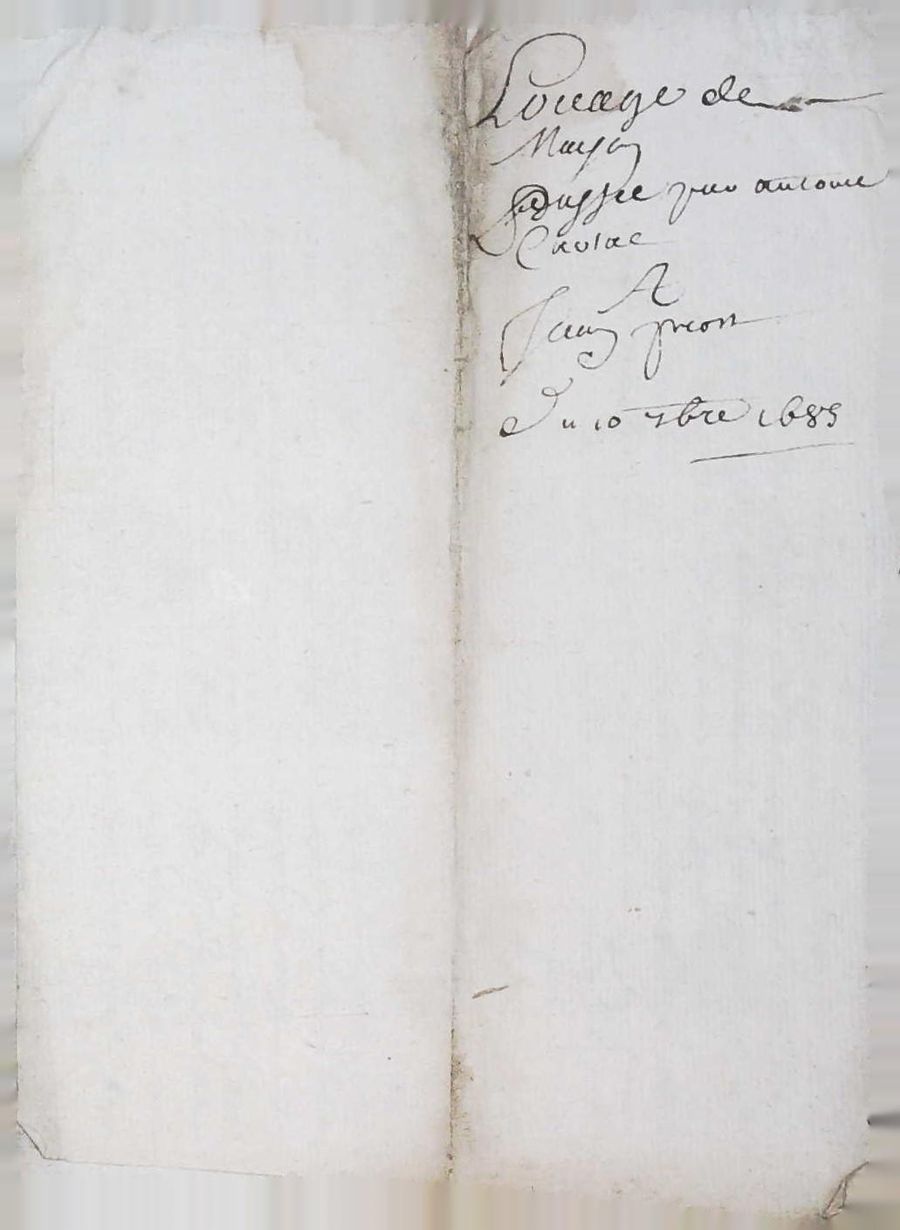 Louage de
Mayson
passée par antoine
Caulac
A
Jean prion
Du 10 7bre 1685